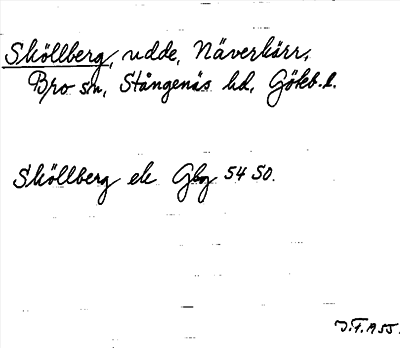 Sköllberg, udde, Näverkärr,
Bro sn, Stångenäs hd, Gökb.l.
Sköllberg ek Gbg 54 50.
J.F. 1955.